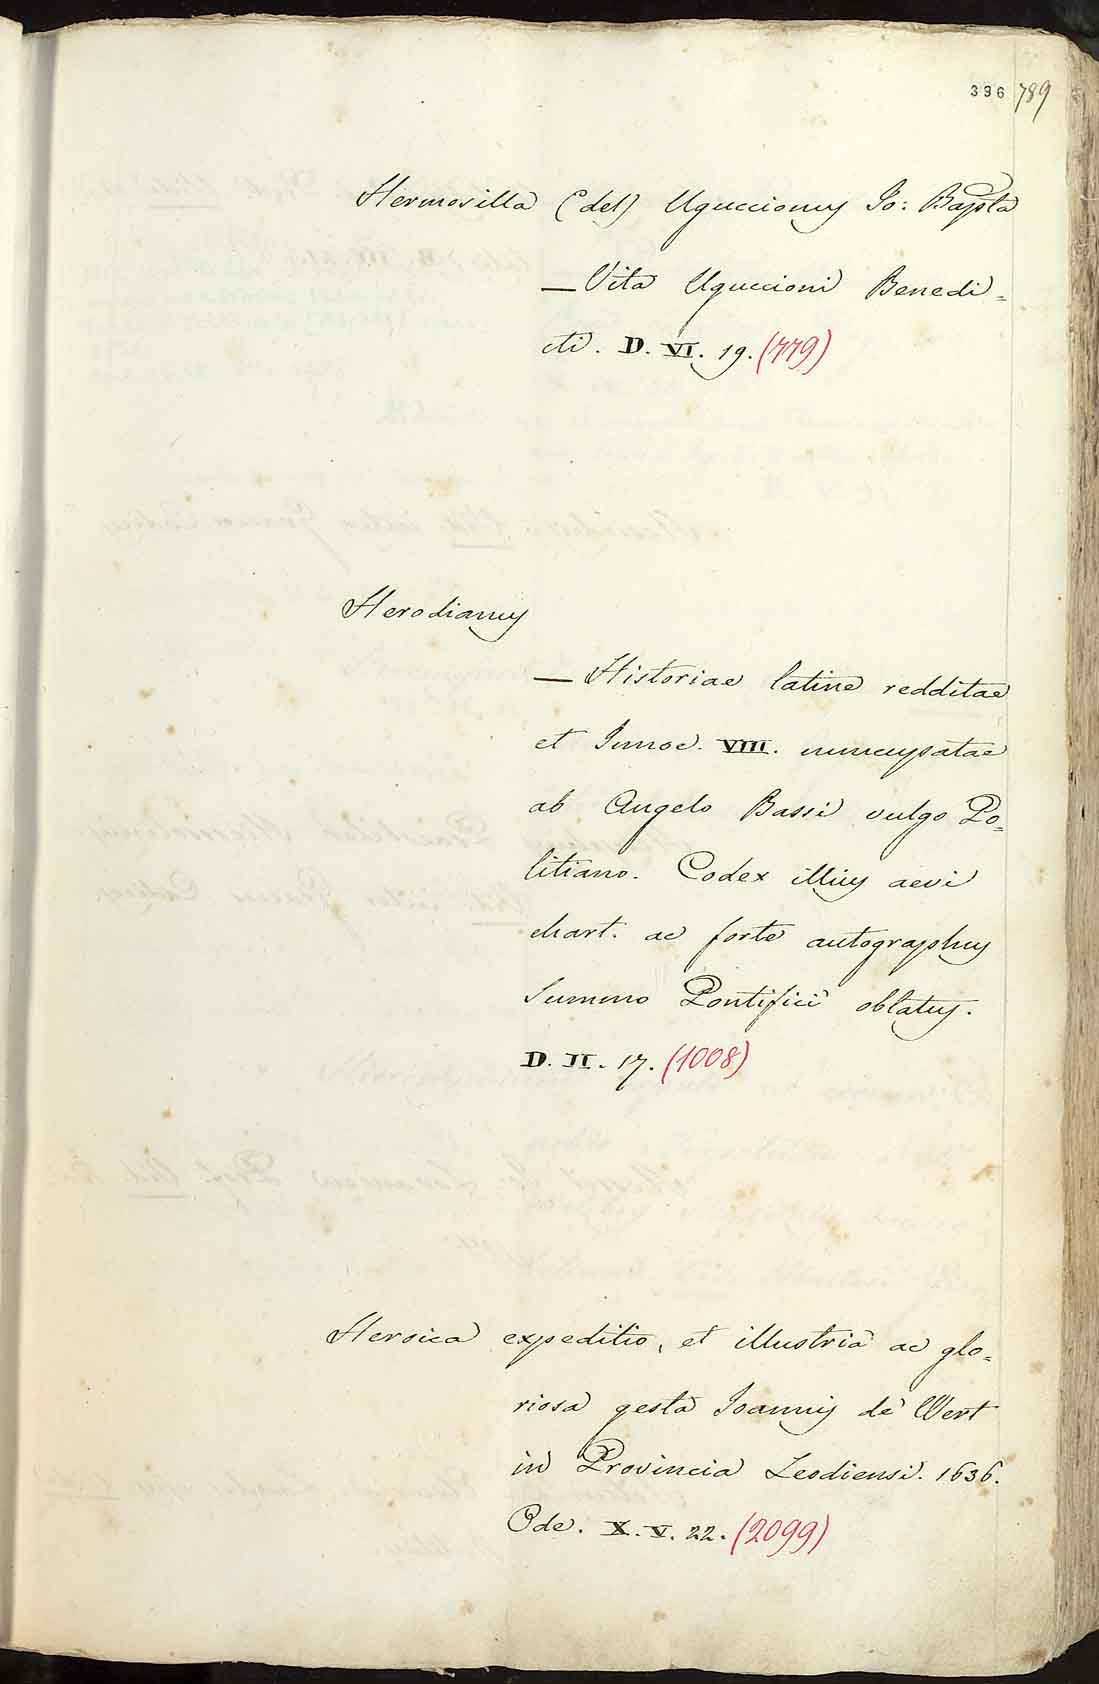 396 789
Hermosilla (del) Uguccionus Jo: Bapsta
— Vita Uguccioni Benedi=
cti. D. VI. 19. (779)
Herodianus
— Historiae latine redditae
et Innoc. VIII. nuncupatae
ab Angelo Bassi vulgo Po=
litiano. Codex illius aevi
chart. ac forte autographus
Summo Pontifici oblatus.
D. II. 17. (1008)
Heroica expeditio, et illustria ac glo=
riosa gesta Joannis de Wert
in Provincia Leodiensi. 1636.
Ode. X. V. 22. (2099)